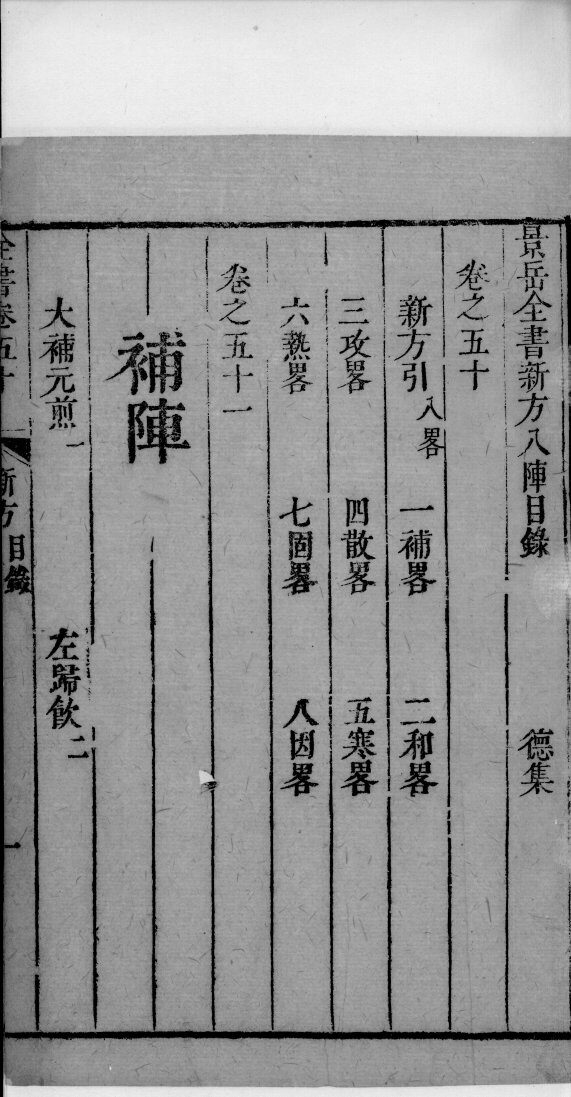 景岳全書新方八陣目錄 德集
卷之五十
新方引 八畧 一補畧 二和畧
三攻畧 四散畧 五寒畧
六熱畧 七固畧 八因畧
卷之五十一
補陣
大補元煎 一 左歸飮 二
全書卷五十 新方目錄 一